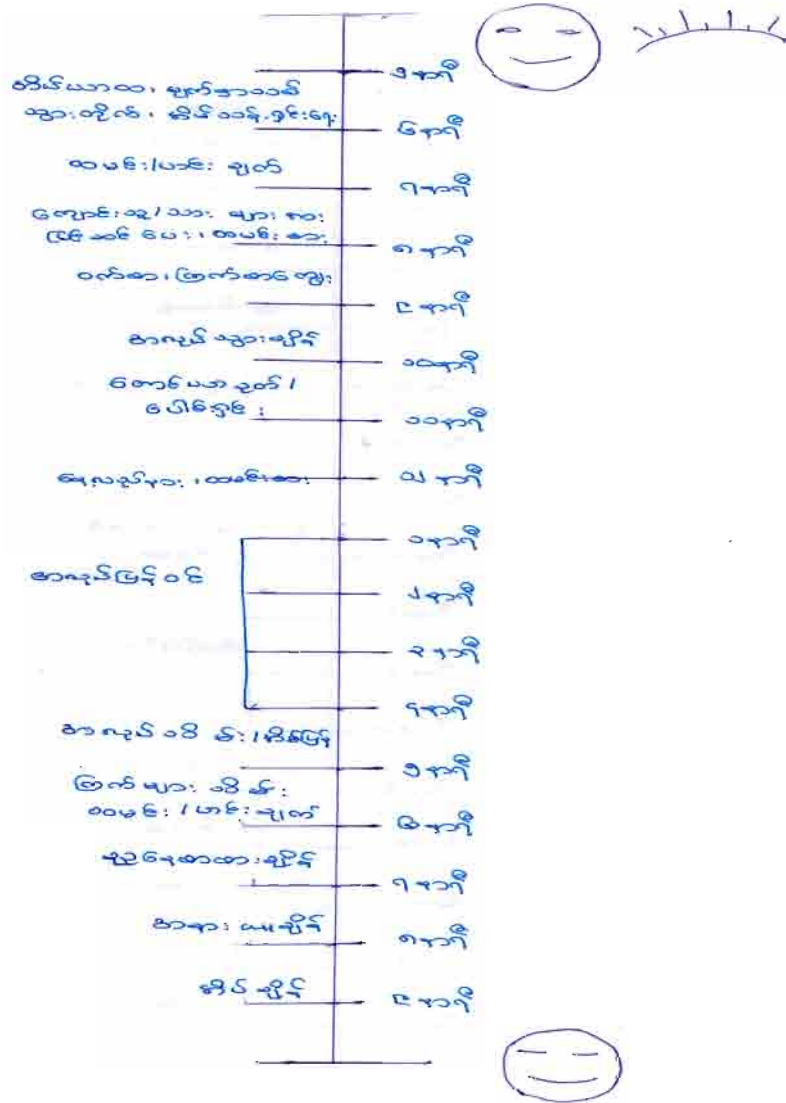 ၅ နာရီ
အိပ်ယာထ၊ မျက်နှာသစ်
သွားတိုက်၊ အိပ်ခန်းရှင်းရေး
၆ နာရီ
ထမင်း/ဟင်း ချက်
၇ နာရီ
ကျောင်းသူ/သား များ အား
ပြင်ဆင် ပေး၊ ထမင်း စား
၈ နာရီ
ဝက်စာ၊ ကြက်စာကျွေး
၉ နာရီ
အလုပ် သွားချိန်
၁၀ နာရီ
တောင်ယာ ခုတ် /
ပေါင်းရှင်း
၁၁ နာရီ
နေ့လည်နား၊ ထမင်းစား
၁၂ နာရီ
၁ နာရီ
အလုပ်ပြန်ဝင်
၂ နာရီ
၃ နာရီ
၄ နာရီ
အလုပ် သိမ်း / အိမ်ပြန်
၅ နာရီ
ကြက် များ သိမ်း
ထမင်း / ဟင်း ချက်
၆ နာရီ
ညနေစာစားချိန်
၇ နာရီ
အနား ယူချိန်
၈ နာရီ
အိပ် ချိန်
၉ နာရီ